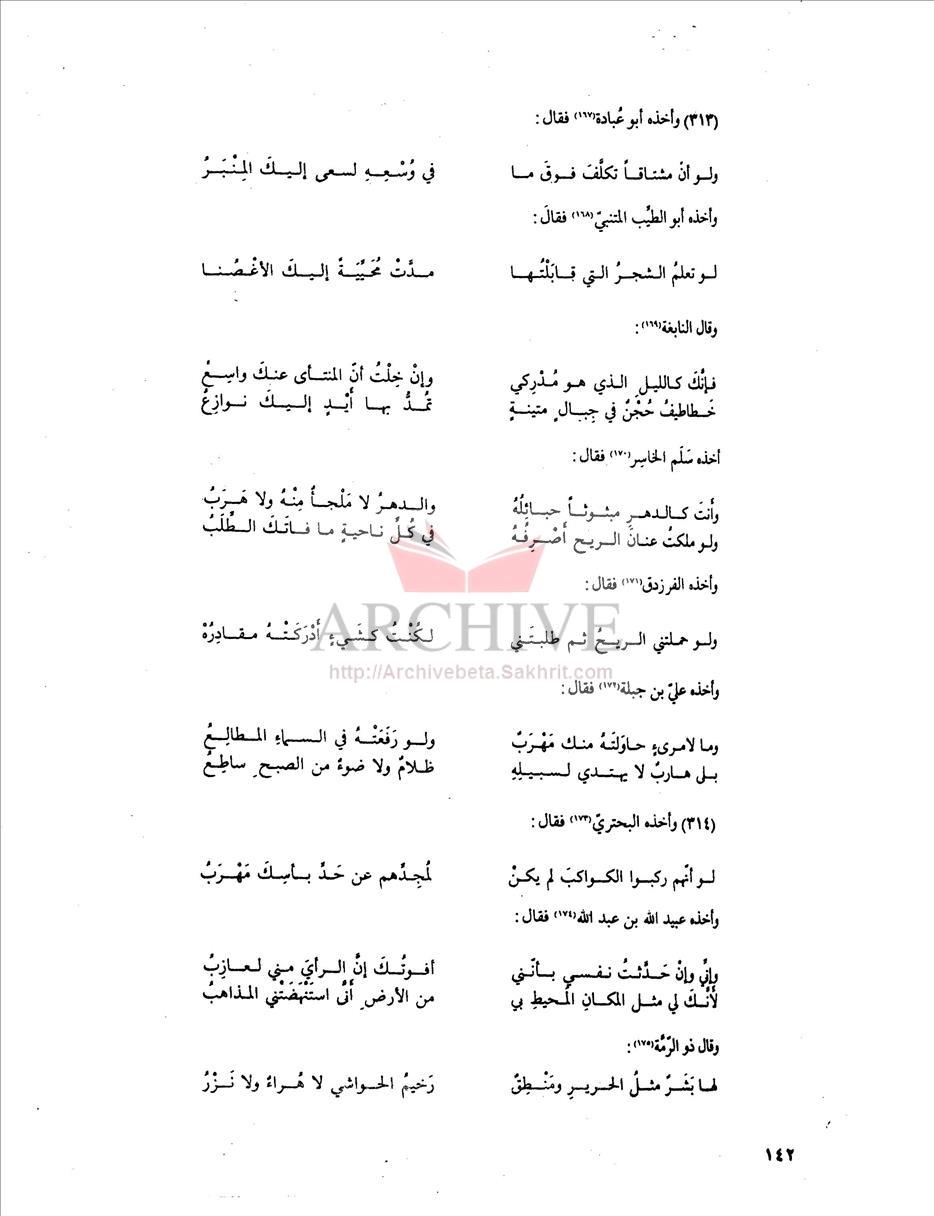 (٣١٣) وأخذه أبو عُبادة(١٦٧) فقال :
ولو أنّ مشتاقاً تكلَّفَ فوقَ ما في وُسْعِهِ لسعى إليكَ المِنْبَرُ
وأخذه أبو الطيِّب المتنبيّ(١٦٨) فقالَ :
لو تعلمُ الشجرُ التي قابَلْتُها مدَّتْ مُحَيِّيَةً إليكَ الأغْصُنا
وقال النابغة(١٦٩) :
فإنَّكَ كالليلِ الذي هو مُدْرِكي وإنْ خِلْتُ أنّ المنتأى عنكَ واسِعُ
خَطاطيفُ حُجْنٌ في حِبالٍ متينةٍ تمُدُّ بها أَيْدٍ إليكَ نوازِعُ
أخذه سَلَم الخاسِر(١٧٠) فقال :
وأنتَ كالدهرِ مبثوثاً حبائلُهُ والدهرُ لا مَلْجأٌ مِنْهُ ولا هَرَبُ
ولو ملكتُ عنانَ الريحِ أَصْرِفُهُ في كُلِّ ناحيةٍ ما فاتَكَ الطَّلَبُ
وأخذه الفرزدق(١٧١) فقال :
ARCHIVE
ولو حملتني الريحُ ثم طلبتَني لكُنْتُ كشَيءٍ أَدْرَكَتْهُ مقادِرُهْ
http://Archivebeta.Sakhrit.com
وأخذه عليّ بن جبلة(١٧٢) فقال :
وما لامرىءٍ حاوَلتَهُ منك مَهْرَبٌ ولو رَفَعَتْهُ في السماءِ المطالِعُ
بلى هاربٌ لا يهتدي لسبيلِهِ ظلامٌ ولا ضوءٌ من الصبحِ ساطِعُ
(٣١٤) وأخذه البحتريّ(١٧٣) فقال :
لو أنّهم ركبوا الكواكبَ لم يكنْ لمُجِدِّهم عن حَدِّ بأسِكَ مَهْرَبُ
وأخذه عبيد الله بن عبد الله(١٧٤) فقال :
وإنِّي وإنْ حَدَّثتُ نفسي بأنّني أفوتُكَ إنَّ الرأيَ مني لعازِبُ
لأنَّكَ لي مثل المكانِ المُحيطِ بي من الأرضِ أنَّى استَنْهَضَتْني المذاهبُ
وقال ذو الرّمُّة(١٧٥) :
لها بَشَرٌ مثلُ الحريرِ ومَنْطِقٌ رَخيمُ الحواشي لا هُراءٌ ولا نَزْرُ
١٤٢